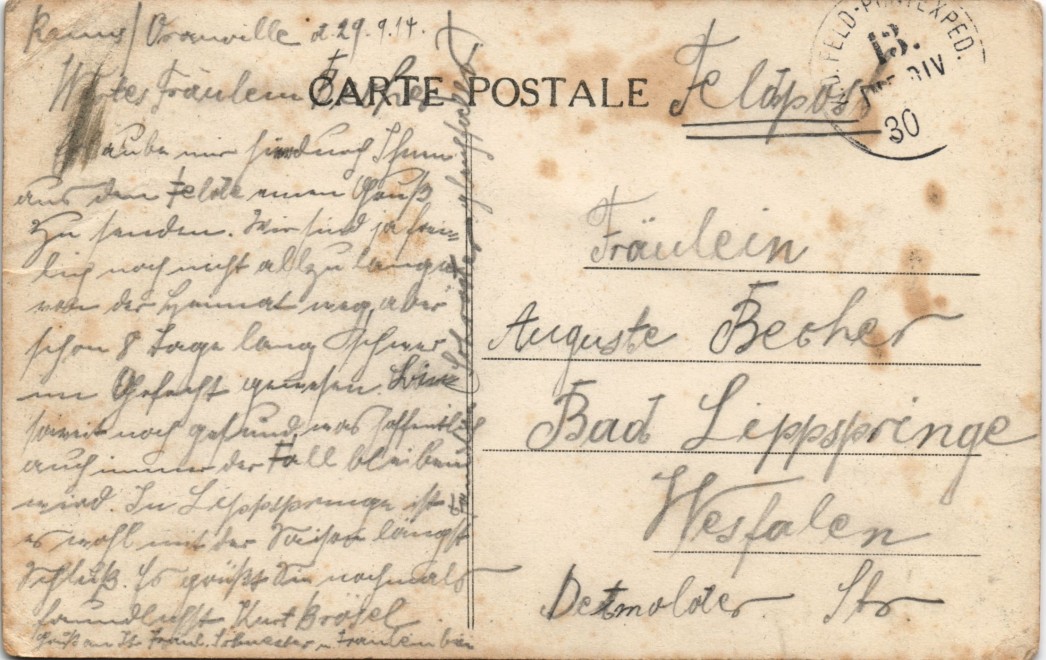 Reims/ Oranville d. 29.9.14.
Wertes Fräulein Becher
CARTE POSTALE
Feldpost
FELD-POSTEXPED.
13.
DIV
30
aube mir hierdurch Ihnen
aus dem Felde einen Gruß
zu senden. Wir sind ja frei=
lich noch nicht allzu lange
von der Heimat weg, aber
schon 8 Tage lang schwer
im Gefecht gewesen. Bin
soweit noch gesund, was hoffentlich
auch immer der Fall bleiben
wird. In Lippspringe ist
es wohl mit der Saison längst
Schluß. Es grüßt Sie nochmals
freundlichst Kurt Brösel
Gruß an Ihr Fräul. Schwester u. Fräulein
Fräulein
Auguste Becher
Bad Lippspringe
Wesfalen
Detmolder Str